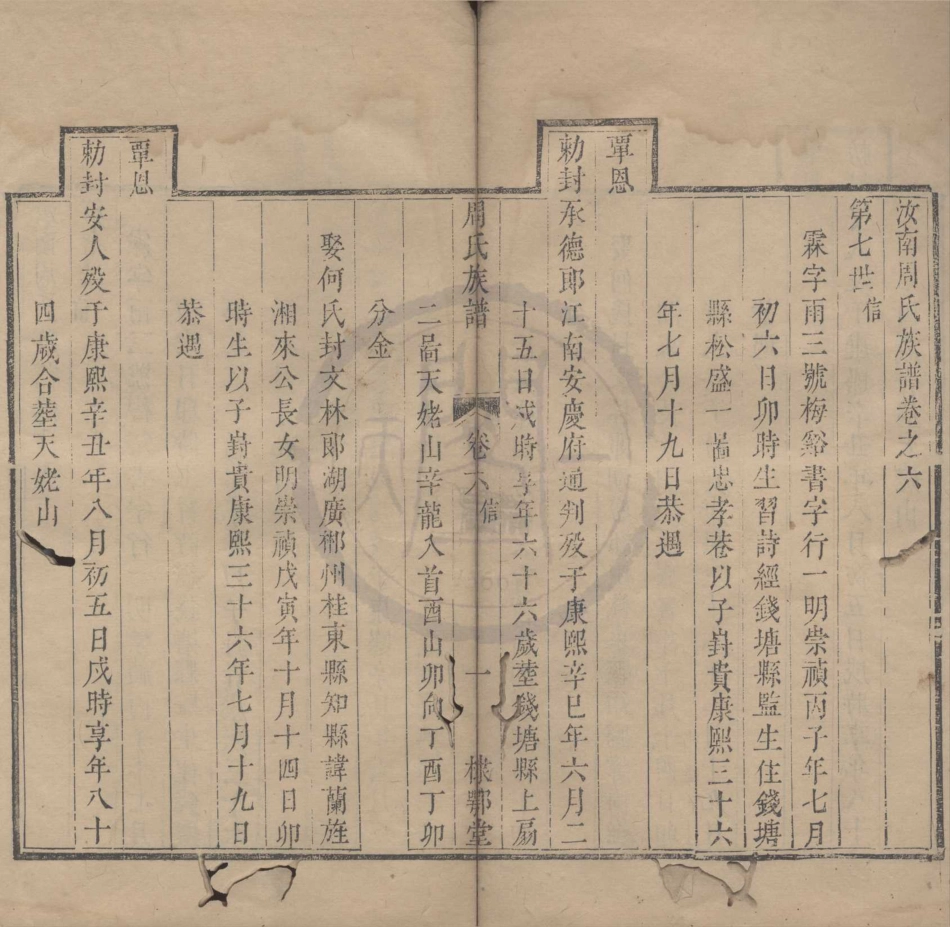 汝南周氏族譜卷之六
第七世 信
霖字雨三號梅谿書字行一明崇禎丙子年七月
初六日卯時生習詩經錢塘縣監生住錢塘
縣松盛一啚忠孝巷以子對貴康熙三十六
年七月十九日恭遇
覃恩
勅封承德郎江南安慶府通判歿于康熙辛巳年六月二
十五日戌時享年六十六歲塟錢塘縣上扇
周氏族譜 卷六 信 一 棣鄂堂
二啚天姥山辛龍入首酉山卯向丁酉丁卯
分金
娶何氏封文林郎湖廣郴州桂東縣知縣諱蘭旌
湘來公長女明崇禎戊寅年十月十四日卯
時生以子對貴康熙三十六年七月十九日
恭遇
覃恩
勅封安人歿于康熙辛丑年八月初五日戌時享年八十
四歲合塟天姥山